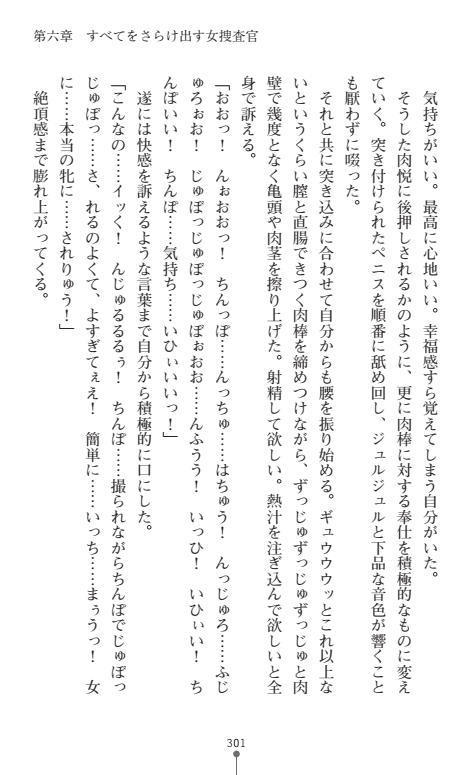 第六章　すべてをさらけ出す女捜査官
　気持ちがいい。最高に心地いい。幸福感すら覚えてしまう自分がいた。
　そうした肉悦に後押しされるかのように、更に肉棒に対する奉仕を積極的なものに変え
ていく。突き付けられたペニスを順番に舐め回し、ジュルジュルと下品な音色が響くこと
も厭わずに啜った。
　それと共に突き込みに合わせて自分からも腰を振り始める。ギュウウウッとこれ以上な
いというくらい膣と直腸できつく肉棒を締めつけながら、ずっじゅずっじゅずっじゅと肉
壁で幾度となく亀頭や肉茎を擦り上げた。射精して欲しい。熱汁を注ぎ込んで欲しいと全
身で訴える。
「おおっ！　んぉおおっ！　ちんっぽ……んっちゅ……はちゅう！　んっじゅろ……ふじ
ゅろぉお！　じゅぽっじゅぽっじゅぽぉおお……んふうう！　いっひ！　いひぃい！　ち
んぽいい！　ちんぽ……気持ち……いひぃいいっ！」
　遂には快感を訴えるような言葉まで自分から積極的に口にした。
「こんなの……イッく！　んじゅるるるぅ！　ちんぽ……撮られながらちんぽでじゅぽっ
じゅぽっ……さ、れるのよくて、よすぎてぇえ！　簡単に……いっち……まぅうっ！　女
に……本当の牝に……されりゅう！」
　絶頂感まで膨れ上がってくる。
301